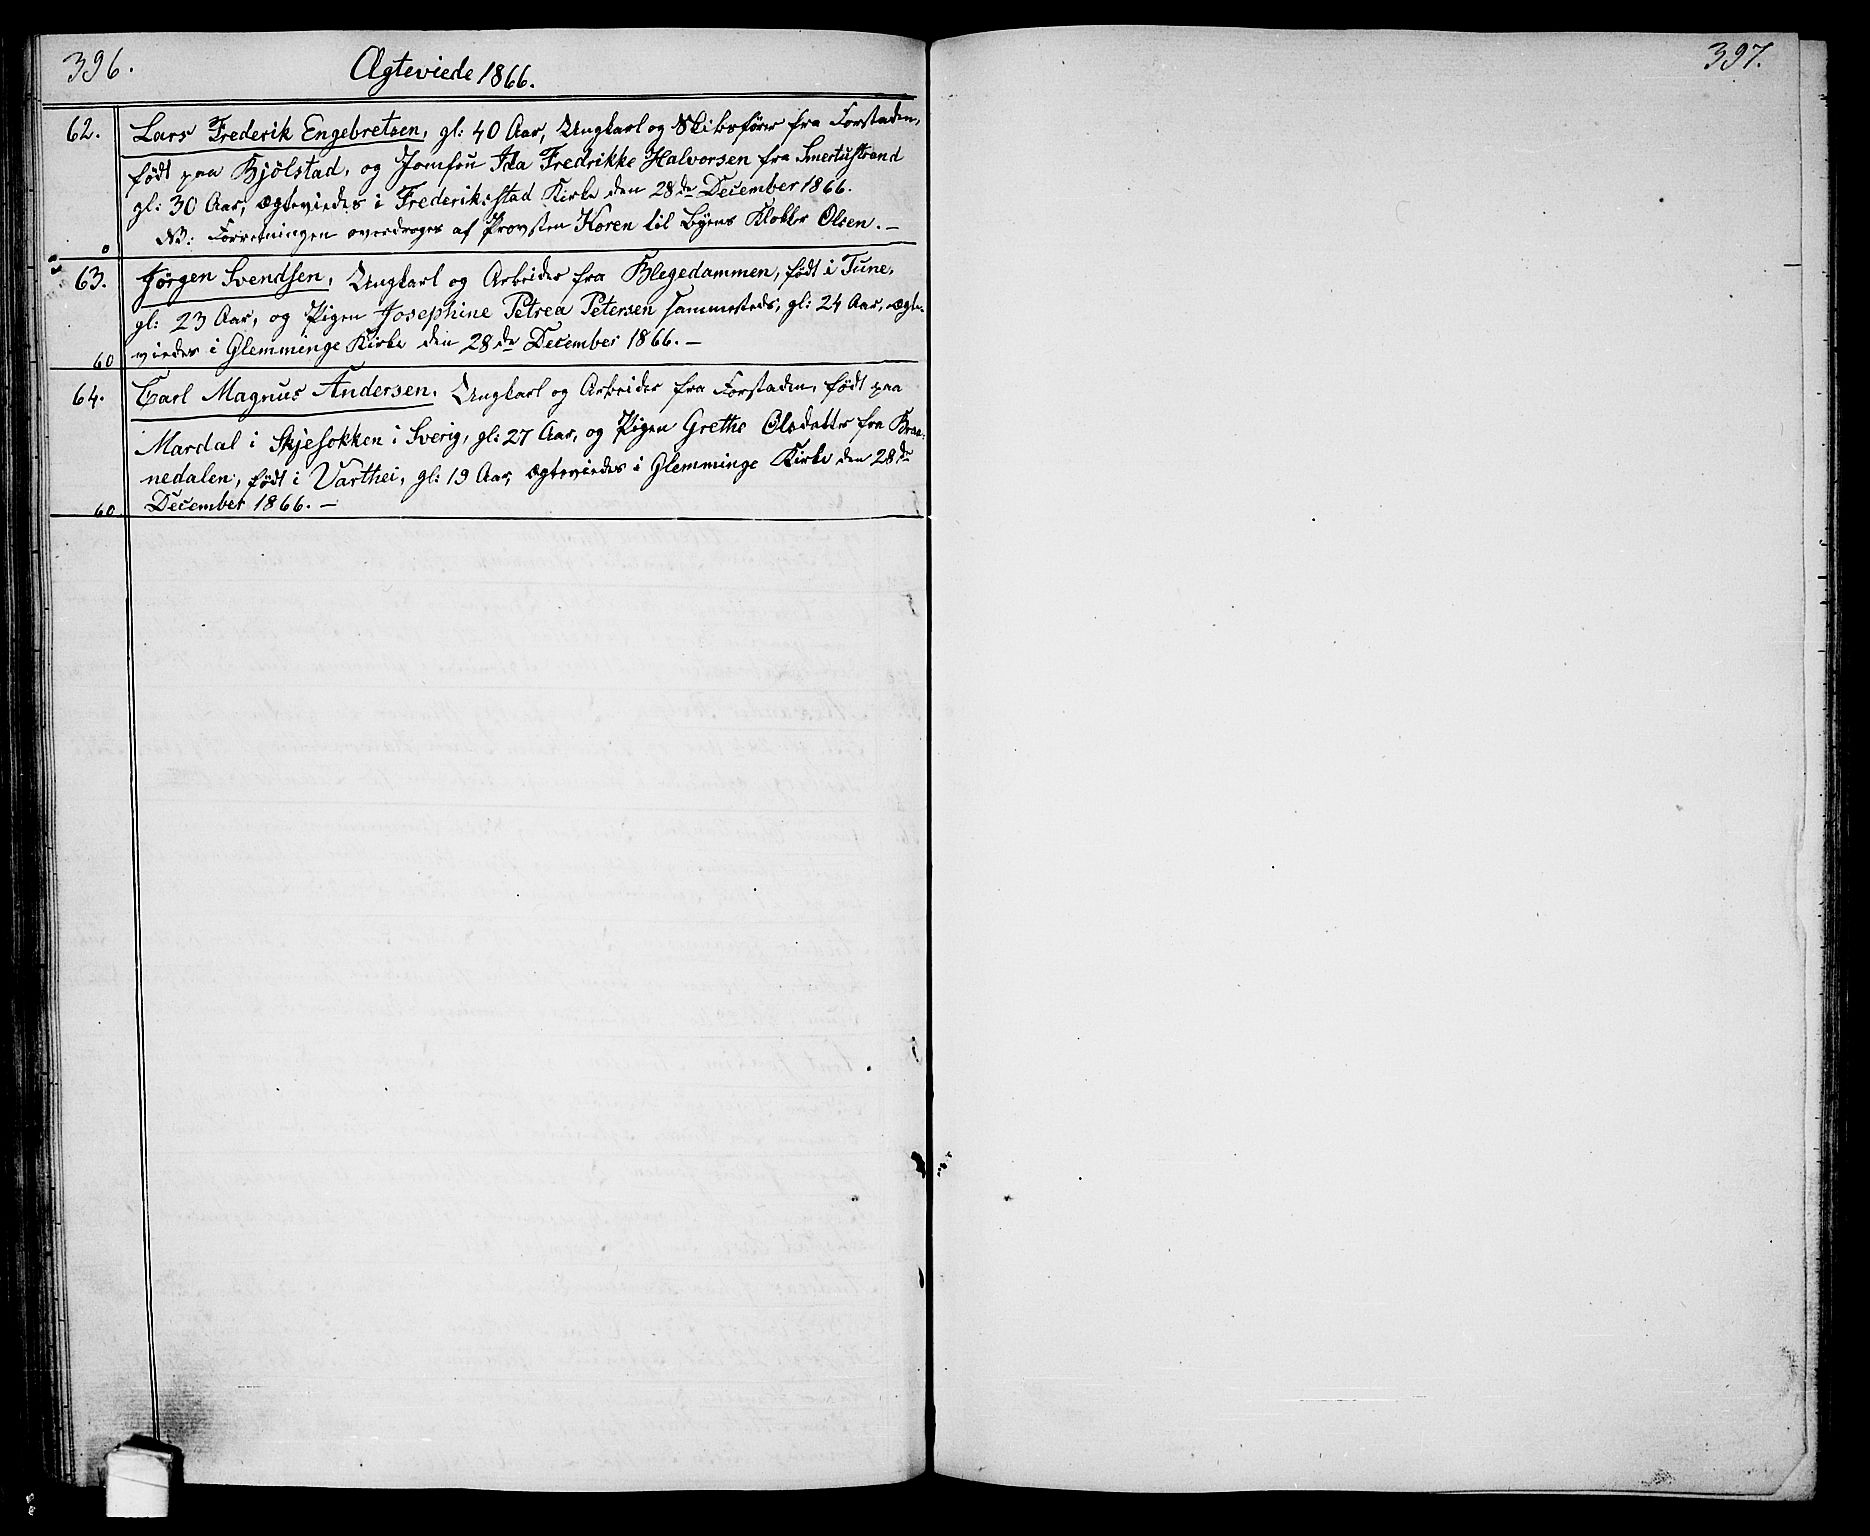 396.
Ægteviede 1866.
397.
62.
Lars Frederik Engebretsen, gl: 40 Aar, Ungkarl og Skibsfører fra Forstaden,
født paa Kjölstad, og Jomfru Ida Fredrikke Halvorsen fra Smertustrand
gl: 30 Aar, ægteviedes i Frederiksstad Kirke den 28de December 1866.
NB: Forretningen overdroges af Provsten Koren til Byens Klokker Olsen. —
0
63.
Jörgen Svendsen, Ungkarl og Arbeider fra Blegedammen, født i Tune,
gl: 23 Aar, og Pigen Josephine Petrea Petersen sammesteds, gl: 24 Aar, ægte-
viedes i Glemminge Kirke den 28de December 1866. —
60
64.
Carl Magnus Andersen, Ungkarl og Arbeider fra Forstaden, født paa
Mardal i Skjesokken i Sverig, gl: 27 Aar, og Pigen Grethe Olsdatter fra Kraa-
nedalen, født i Varthei, gl: 19 Aar, ægteviedes i Glemminge Kirke den 28de
December 1866. —
60